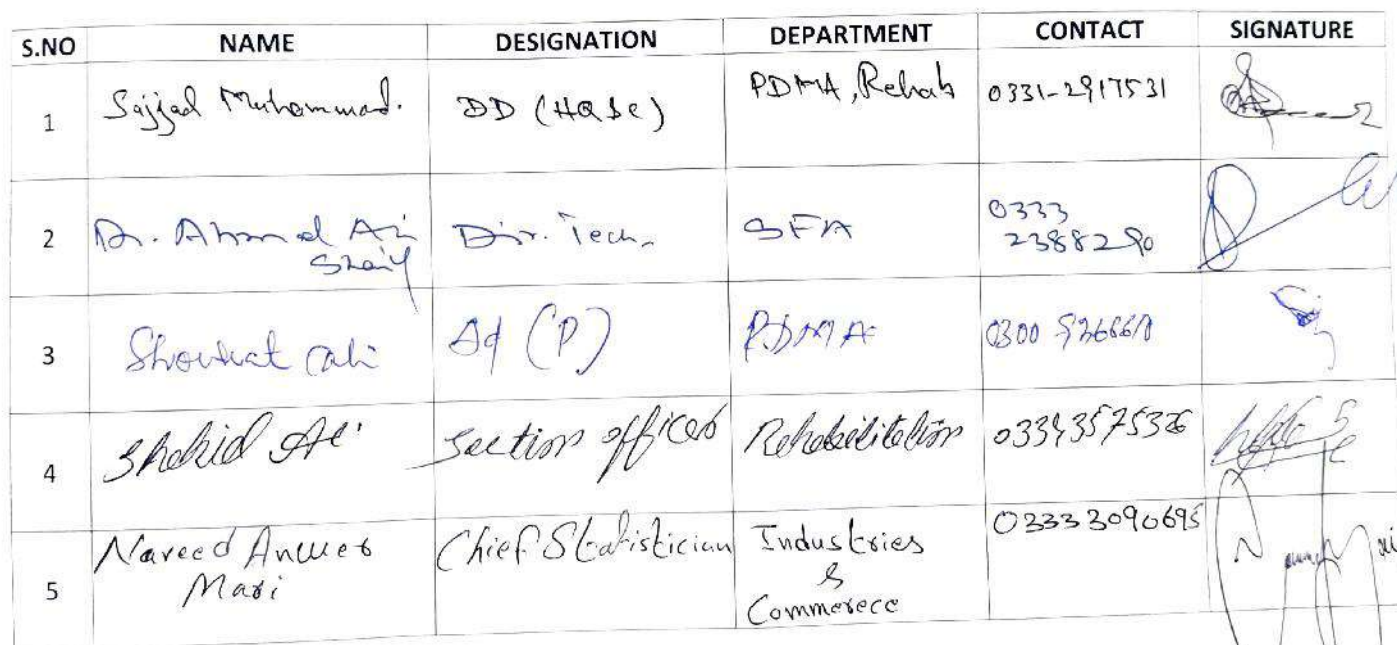 S.NO NAME DESIGNATION DEPARTMENT CONTACT SIGNATURE
1 Sajjad Muhammad. DD (HQ&C) PDMA, Rehab 0331-2917531
2 Dr. Ahmad Ali Dir. Tech. SFA 0333
Shaif 2388290
3 Shoukat Ali AD (P) PDMA 0300
4 Shahid Ali Section officer Rehabilitation 03343575326
5 Naveed Anwer Chief Statistician Industries 03333090695
Mari &
Commerece